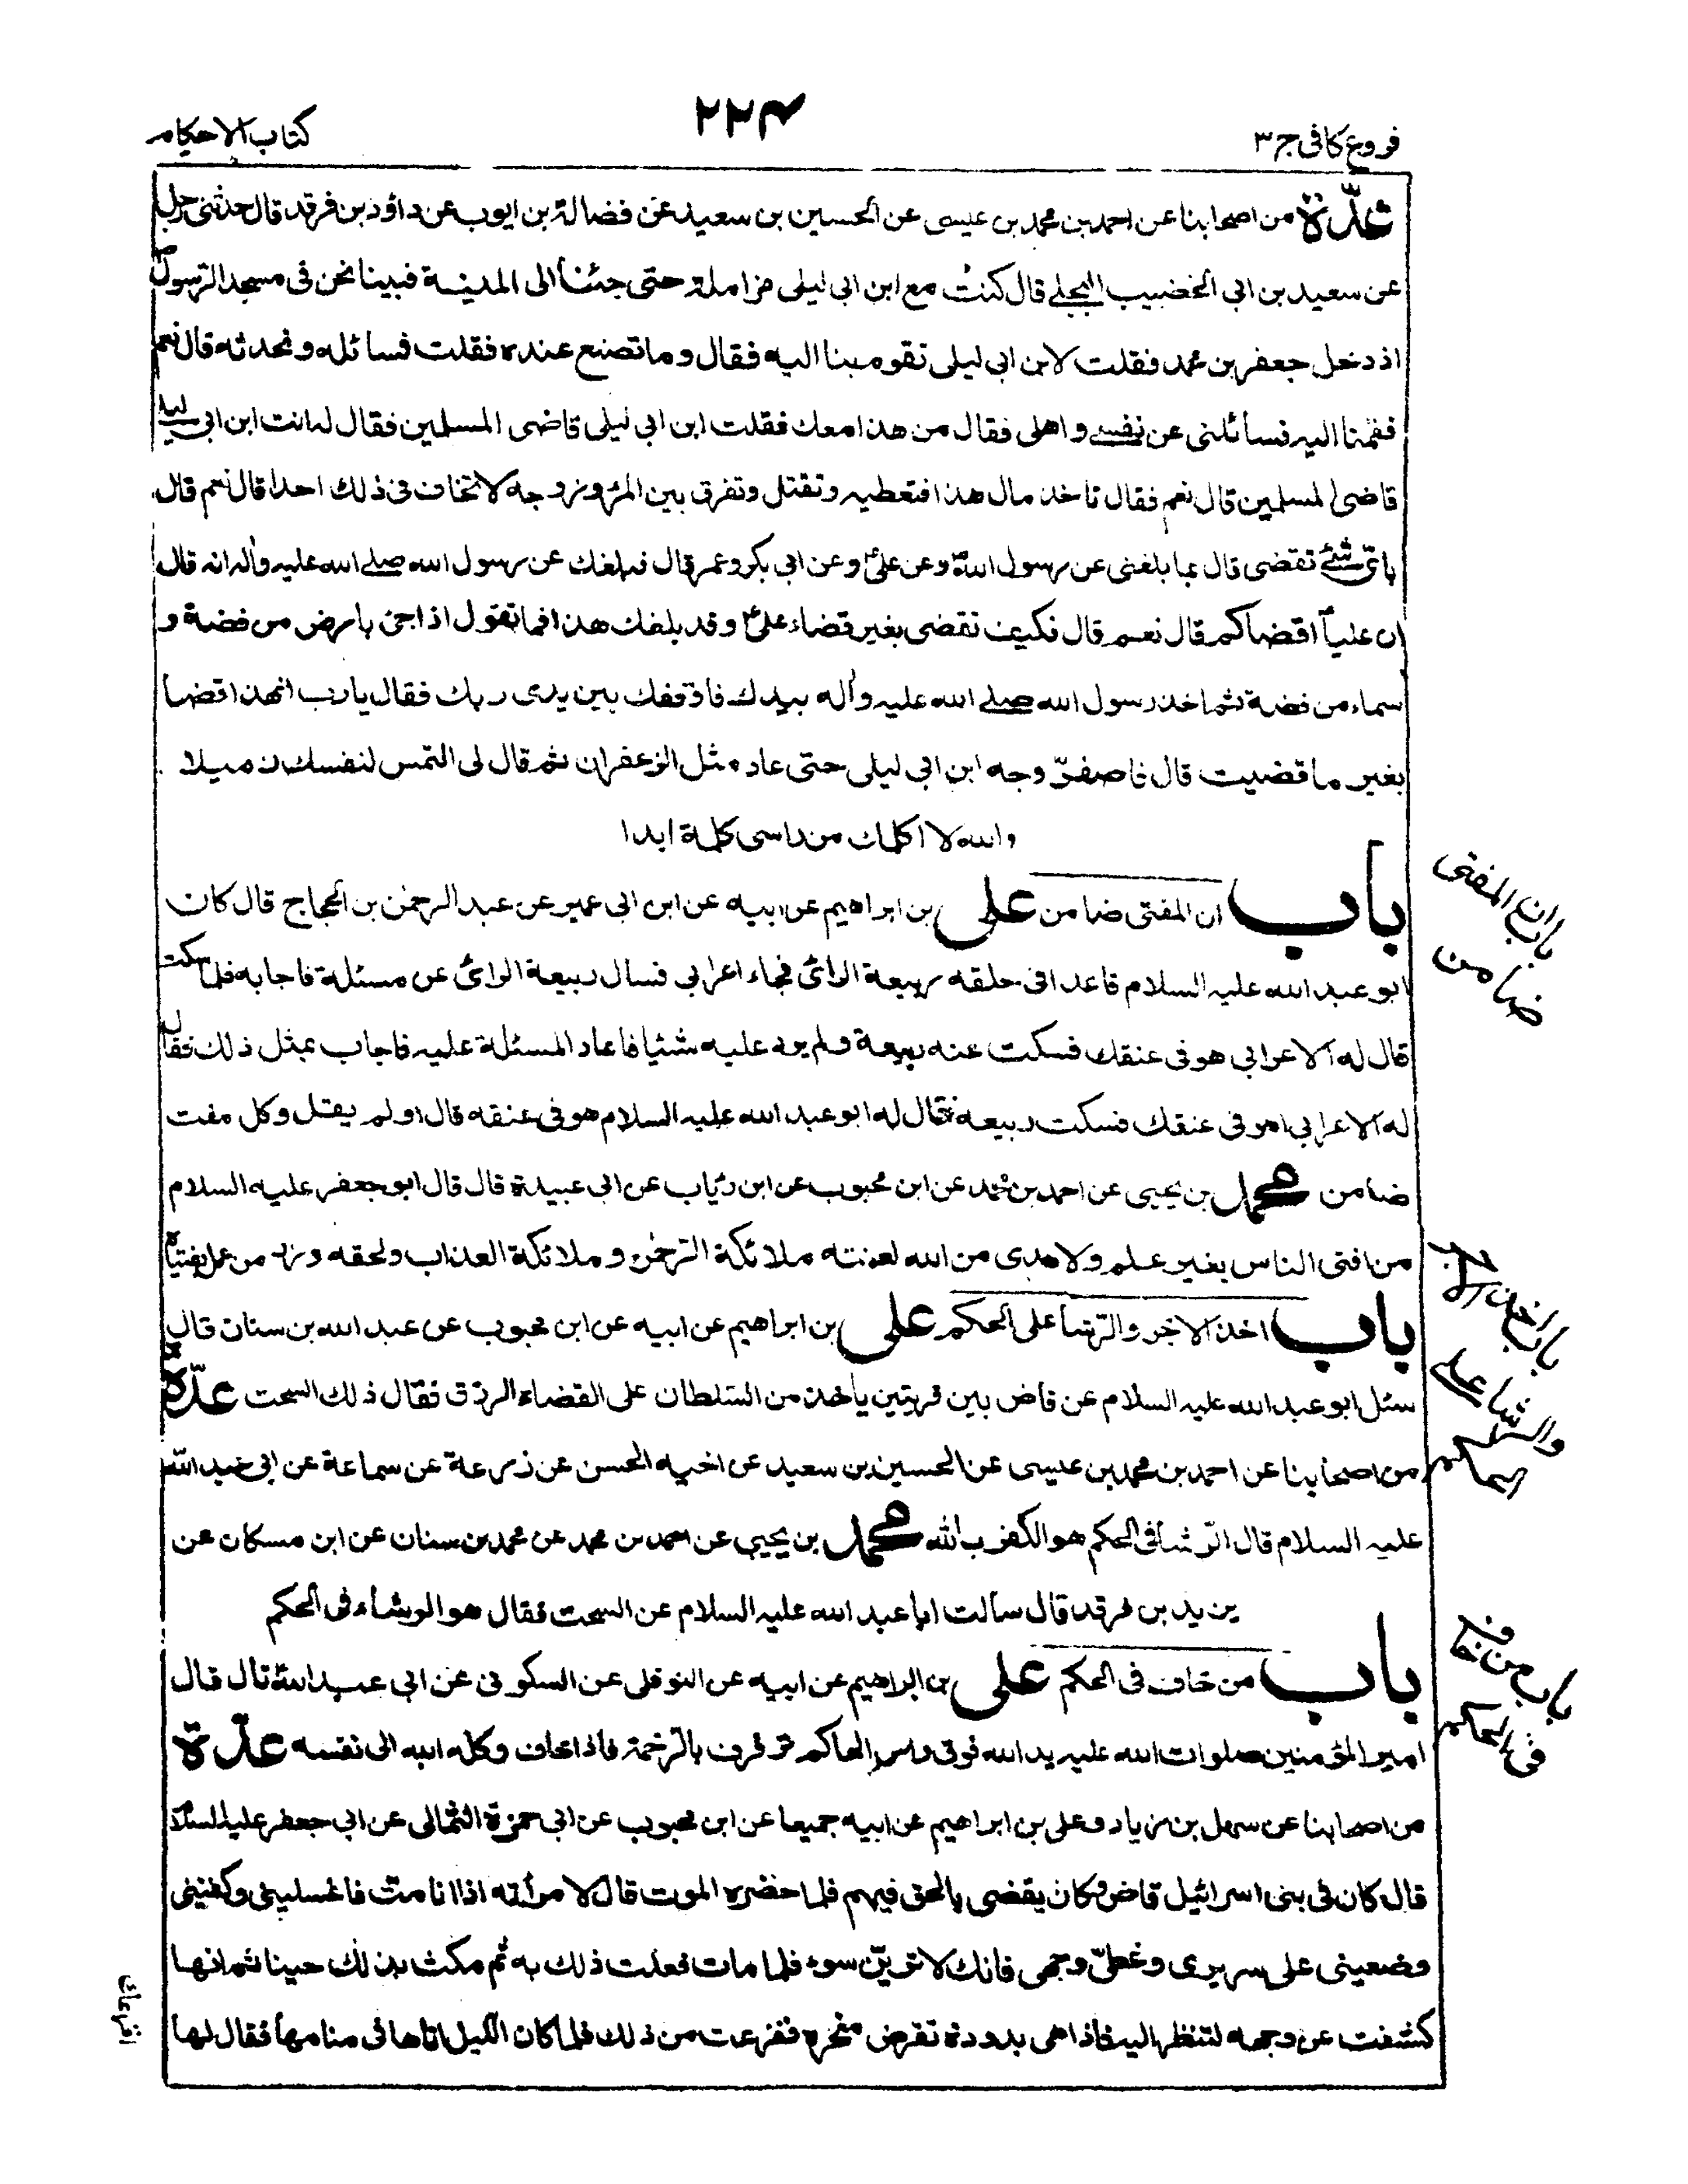 فروع کافی ج ۳
۲۲۴
کتاب الاحکام
عدّة من اصحابنا عن احمد بن محمد بن عیسی عن الحسین بن سعید عن فضالة بن ایوب عن داؤد بن فرقد قال حدثنی رجل
عن سعید بن ابی الخضیب البجلے قال کنت مع ابن ابی لیلی مزاملة حتی جئنا الی المدینة فبینا نحن فی مسجد الرسول ص
اذ دخل جعفر بن محمد فقلت لابن ابی لیلی تقوم بنا الیه فقال وما تصنع عنده فقلت فسائله ونحدثه قال نعم
فقمنا الیه فسائلنی عن نفسے واهلی فقال من هذا معك فقلت ابن ابی لیلی قاضی المسلمین فقال له انت ابن ابی لیلے
قاضی المسلمین قال نعم فقال تاخذ مال هذا فتعطیه وتقتل وتفرق بین المرء وزوجه لا تخاف فی ذلك احدا قال نعم قال
بایّ شئے تقضی قال بما بلغنی عن رسول اللهؐ وعن علیؑ وعن ابی بکر وعمر قال فبلغك عن رسول الله صلے الله علیه وآله انه قال
ان علیاً اقضاکم قال نعم قال فکیف تقضی بغیر قضاء علیؑ وقد بلغك هذا فما تقول اذا جئ بارض من فضة و
سماء من فضة ثم اخذ رسول الله صلے الله علیه وآله بیدك فاوقفك بین یدی ربك فقال یارب ان هذا قضا
بغیر ما قضیت قال فاصفرّ وجه ابن ابی لیلی حتی عاد مثل الزعفران ثم قال لی التمس لنفسك زمیلا
والله لا اکلمك من راسی کلمة ابدا
باب ان المفتی ضامن علی بن ابراهیم عن ابیه عن ابن ابی عمیر عن عبد الرحمن بن الحجاج قال کان
ابو عبد الله علیه السلام قاعدا فی حلقه ربیعة الرائ فجاء اعرابی فسال ربیعة الرائ عن مسئلة فاجابه فلما سکت
قال له الاعرابی هو فی عنقك فسکت عنه ربیعة ولم یرد علیه شئیا فاعاد المسئلة علیه فاجاب بمثل ذلك فقال
له الاعرابی اهو فی عنقك فسکت ربیعه فقال له ابو عبد الله علیه السلام هو فی عنقه قال اولم یقل وکل مفت
ضامن محمد بن یحیی عن احمد بن محمد عن ابن محبوب عن ابن رئاب عن ابی عبیدة قال قال ابو جعفر علیه السلام
من افتی الناس بغیر علم ولا هدی من الله لعنته ملائکة الرحمن وملائکة العذاب ولحقه وزر من عمل بفتیاه
باب اخذ الاجر والرّشا علی الحکم علی بن ابراهیم عن ابیه عن ابن محبوب عن عبد الله بن سنان قال
سئل ابو عبد الله علیه السلام عن قاض بین قریتین یاخذ من السّلطان علی القضاء الرزق فقال ذلك السحت عدّة
من اصحابنا عن احمد بن محمد بن عیسی عن الحسین بن سعید عن اخیه الحسن عن زرعة عن سماعة عن ابی عبد الله
علیه السلام قال الرّشا فی الحکم هو الکفر بالله محمد بن یحیی عن احمد بن محمد عن محمد بن سنان عن ابن مسکان عن
یزید بن فرقد قال سالت ابا عبد الله علیه السلام عن السحت فقال هو الرشاء فی الحکم
باب من خاف فی الحکم علی بن ابراهیم عن ابیه عن النوفلی عن السکونی عن ابی عبد اللهؑ قال قال
امیر المؤمنین صلوات الله علیه ید الله فوق راس الحاکم ترفرف بالرّحمة فاذا حاف وکله الله الی نفسه عدّة
من اصحابنا عن سهل بن زیاد وعلی بن ابراهیم عن ابیه جمیعا عن ابن محبوب عن ابی حمزة الثمالی عن ابی جعفر علیه السلام
قال کان فی بنی اسرائیل قاض وکان یقضی بالحق فیهم فلما حضره الموت قال لامرأته اذا انا متّ فاغسلینی وکفنینی
وضعینی علی سریری وغطّی وجهی فانك لا ترینّ سوء فلما مات فعلت ذلك به ثم مکث بذلك حینا ثم انها
کشفت عن وجهه لتنظر الیه فاذا هی بدودة تقرض منخره ففزعت من ذلك فلما کان اللیل اتاها فی منامها فقال لها
باب ان المفتی
ضامن
باب اخذ الاجر
والرشا علے
الحکم
باب من خاف
فی الحکم